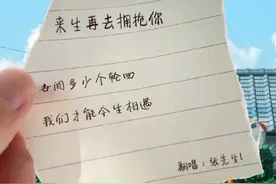 来生再去拥抱你
吞间多少个轮回
我们才能今生相遇
翻唱：张先生！